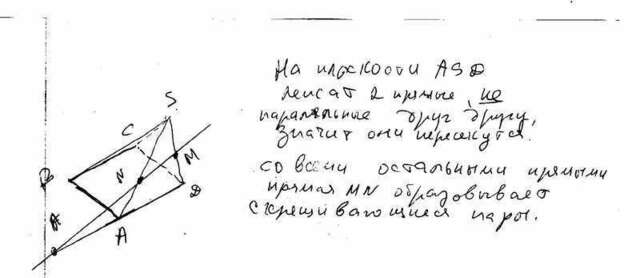 На плоскости ASD
лежат 2 прямые, не
параллельные друг другу,
значит они пересекутся.
со всеми остальными прямыми
прямая MN образовывает
скрещивающиеся пары.
S
C
M
B
N
D
A